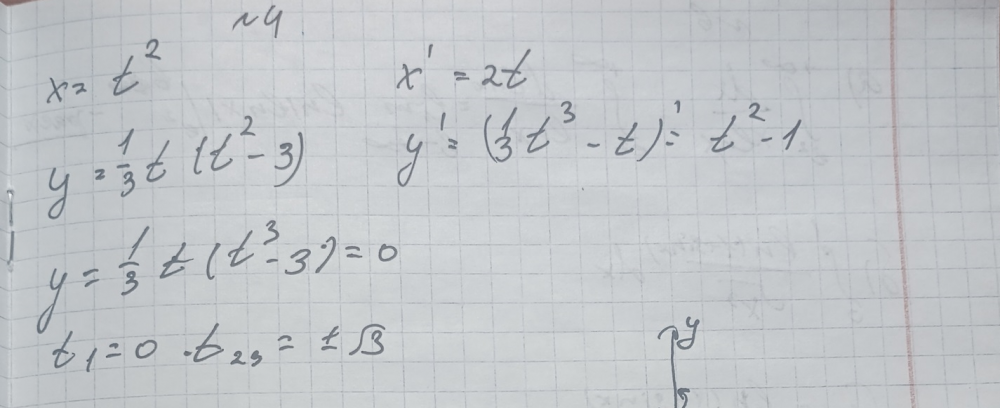 №4
x = t² x' = 2t
y = 1/3 t (t² - 3) y' = (1/3 t³ - t)' = t² - 1
y = 1/3 t (t³ - 3) = 0
t₁ = 0 . t₂₃ = ± √3
y